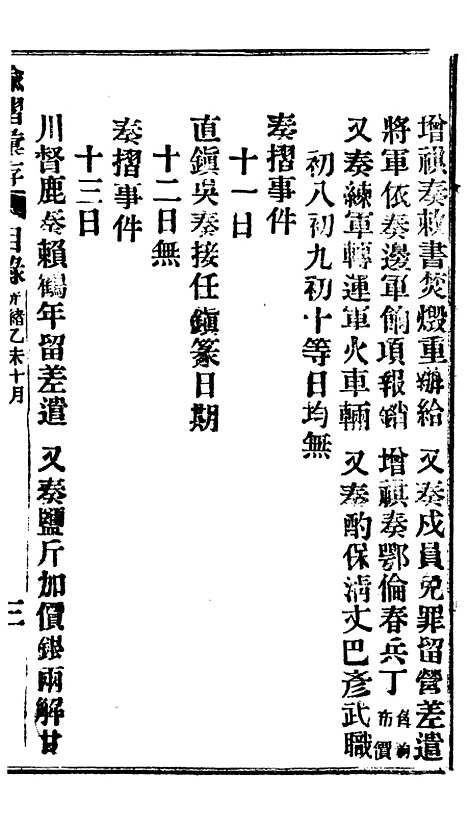 增祺奏敕書焚燬重辦給　又奏戍員免罪留營差遣
將軍依奏邊軍餉項報銷　增祺奏鄂倫春兵丁價布
又奏練軍轉運軍火車輛　又奏酌保淸丈巴彥武職
初八初九初十等日均無
奏摺事件
十一日
直鎭吳奏接任鎭篆日期
十二日無
奏摺事件
十三日
川督鹿奏賴鶴年留差遣　又奏鹽斤加價銀兩解甘
諭摺彙存　目錄　光緒乙未十月　三